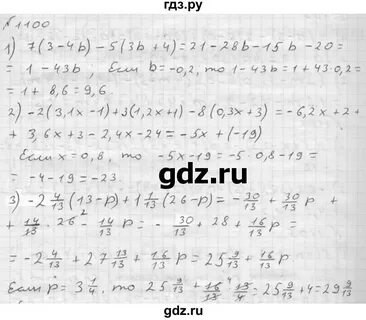 гдз.ру
№1100
1) 7(3-4b)-5(3b+4)=21-28b-15b-20=
=1-43b, Если b=-0,2, то 1-43b=1+43·0,2=
=1+8,6=9,6.
2) -2(3,1x-1)+3(1,2x+1)-8(0,3x+3)=-6,2x+2+
+3,6x+3-2,4x-24=-5x+(-19)
Если x=0,8, то -5x-19=-5·0,8-19=
=-4-19=-23.
3) -2 4/13(13-p)+1 1/13(26-p)=-30/13+30/13p+
+14/13·26²-14/13p=-30/13+28+16/13p=
=-2 4/13+27 13/13+16/13p=25 9/13+16/13p
Если p=3 1/4, то 25 9/13+16/13·13/4=25 9/13+4=29 9/13
гдз.ру